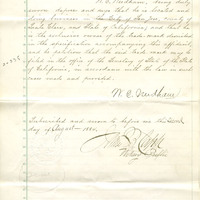 W. C. Needham, being duly
sworn deposes and says that he is located and
doing business in the City of San Jose, County of
Santa Clara, and State of California, and that he
is the exclusive owner of the Trade-mark described
in the specification accompanying this affidavit,
and he petitions that the said Trade-mark may be
filed in the office of the Secretary of State of the State
of California, in accordance with the law in such
case made and provided.
W. C. Needham
Subscribed and sworn to before me this
day of August 188
Notary Public